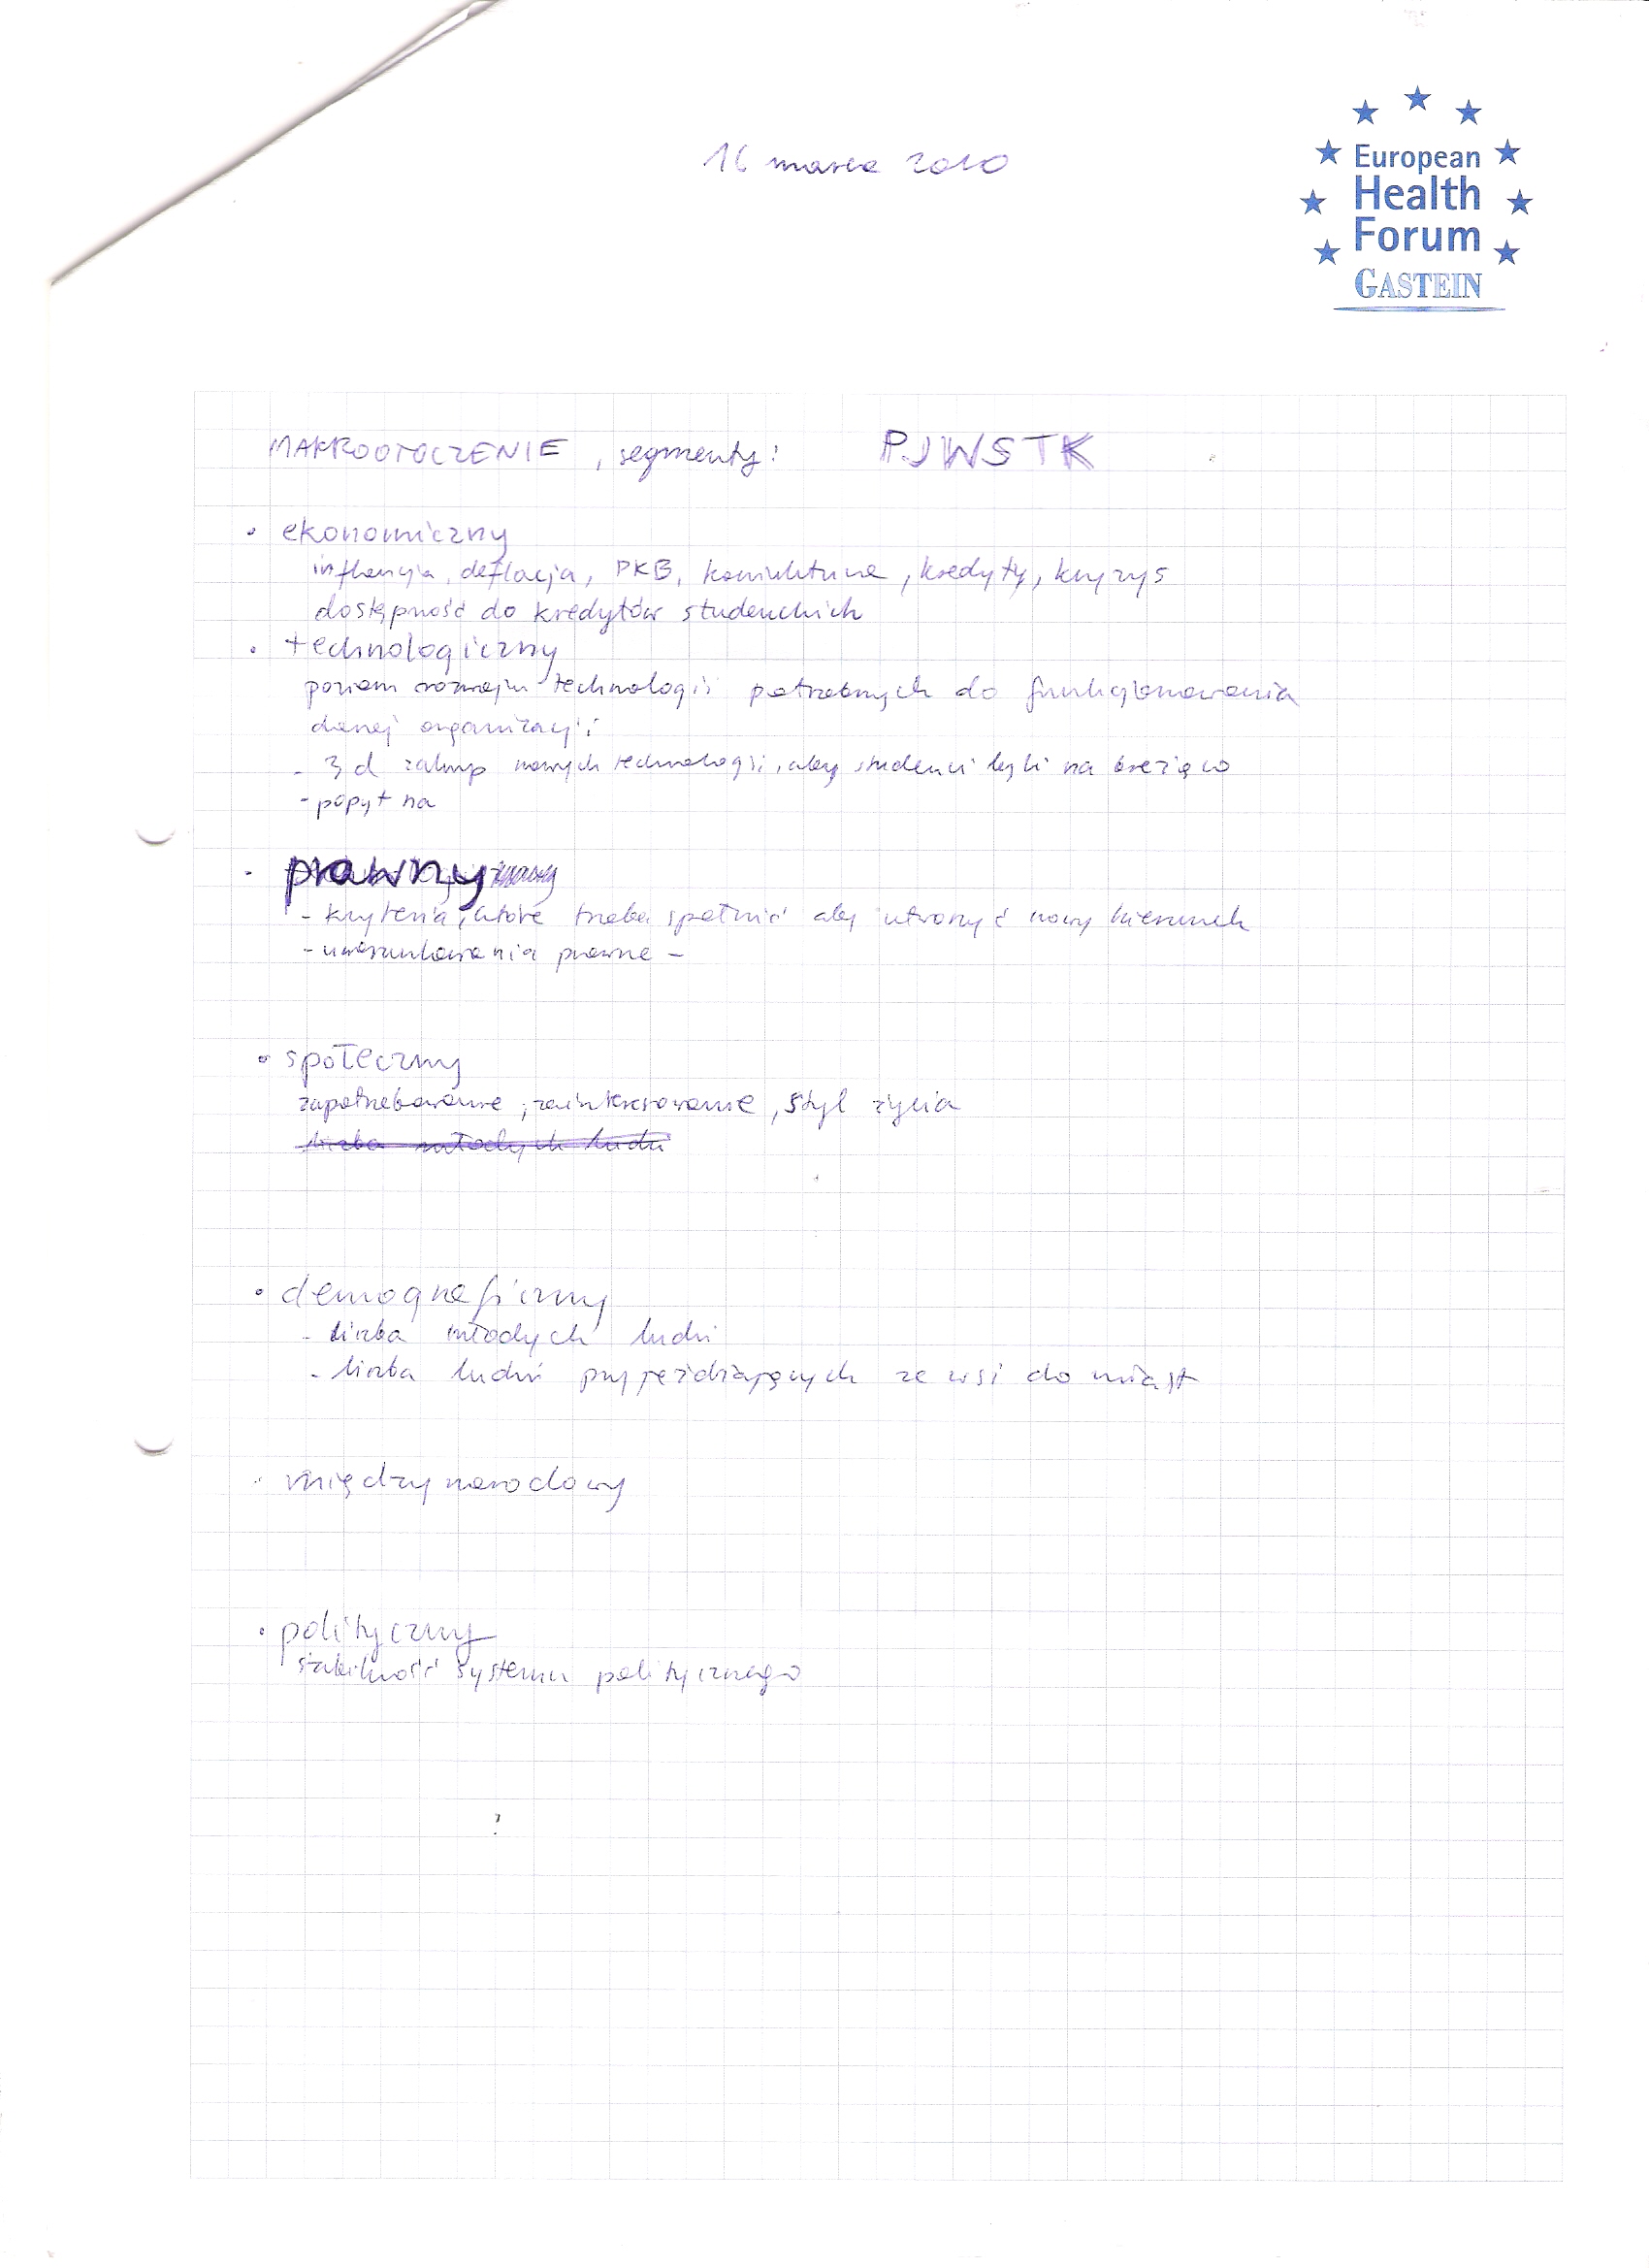 16 marca 2010
European
Health
Forum
GASTEIN
MAKROOTOCZENIE, segmenty: PJWSTK
• ekonomiczny
inflancja, deflacja, PKB, koniunktura, kredyty, kryzys
dostępność do kredytów studenckich
• technologiczny
poziom rozwoju technologii potrzebnych do funkcjonowania
danej organizacji
- 3d zakup nowych technologii, aby studenci byli na bieżąco
- popyt na
• prawny
- kryteria, które trzeba spełnić aby utworzyć nowy kierunek
- uwarunkowania prawne -
• społeczny
zapotrzebowanie, zainteresowanie, styl życia
liczba młodych ludzi
• demograficzny
- liczba młodych ludzi
- liczba ludzi przyjeżdżających ze wsi do miast
• międzynarodowy
• polityczny
stabilność systemu politycznego